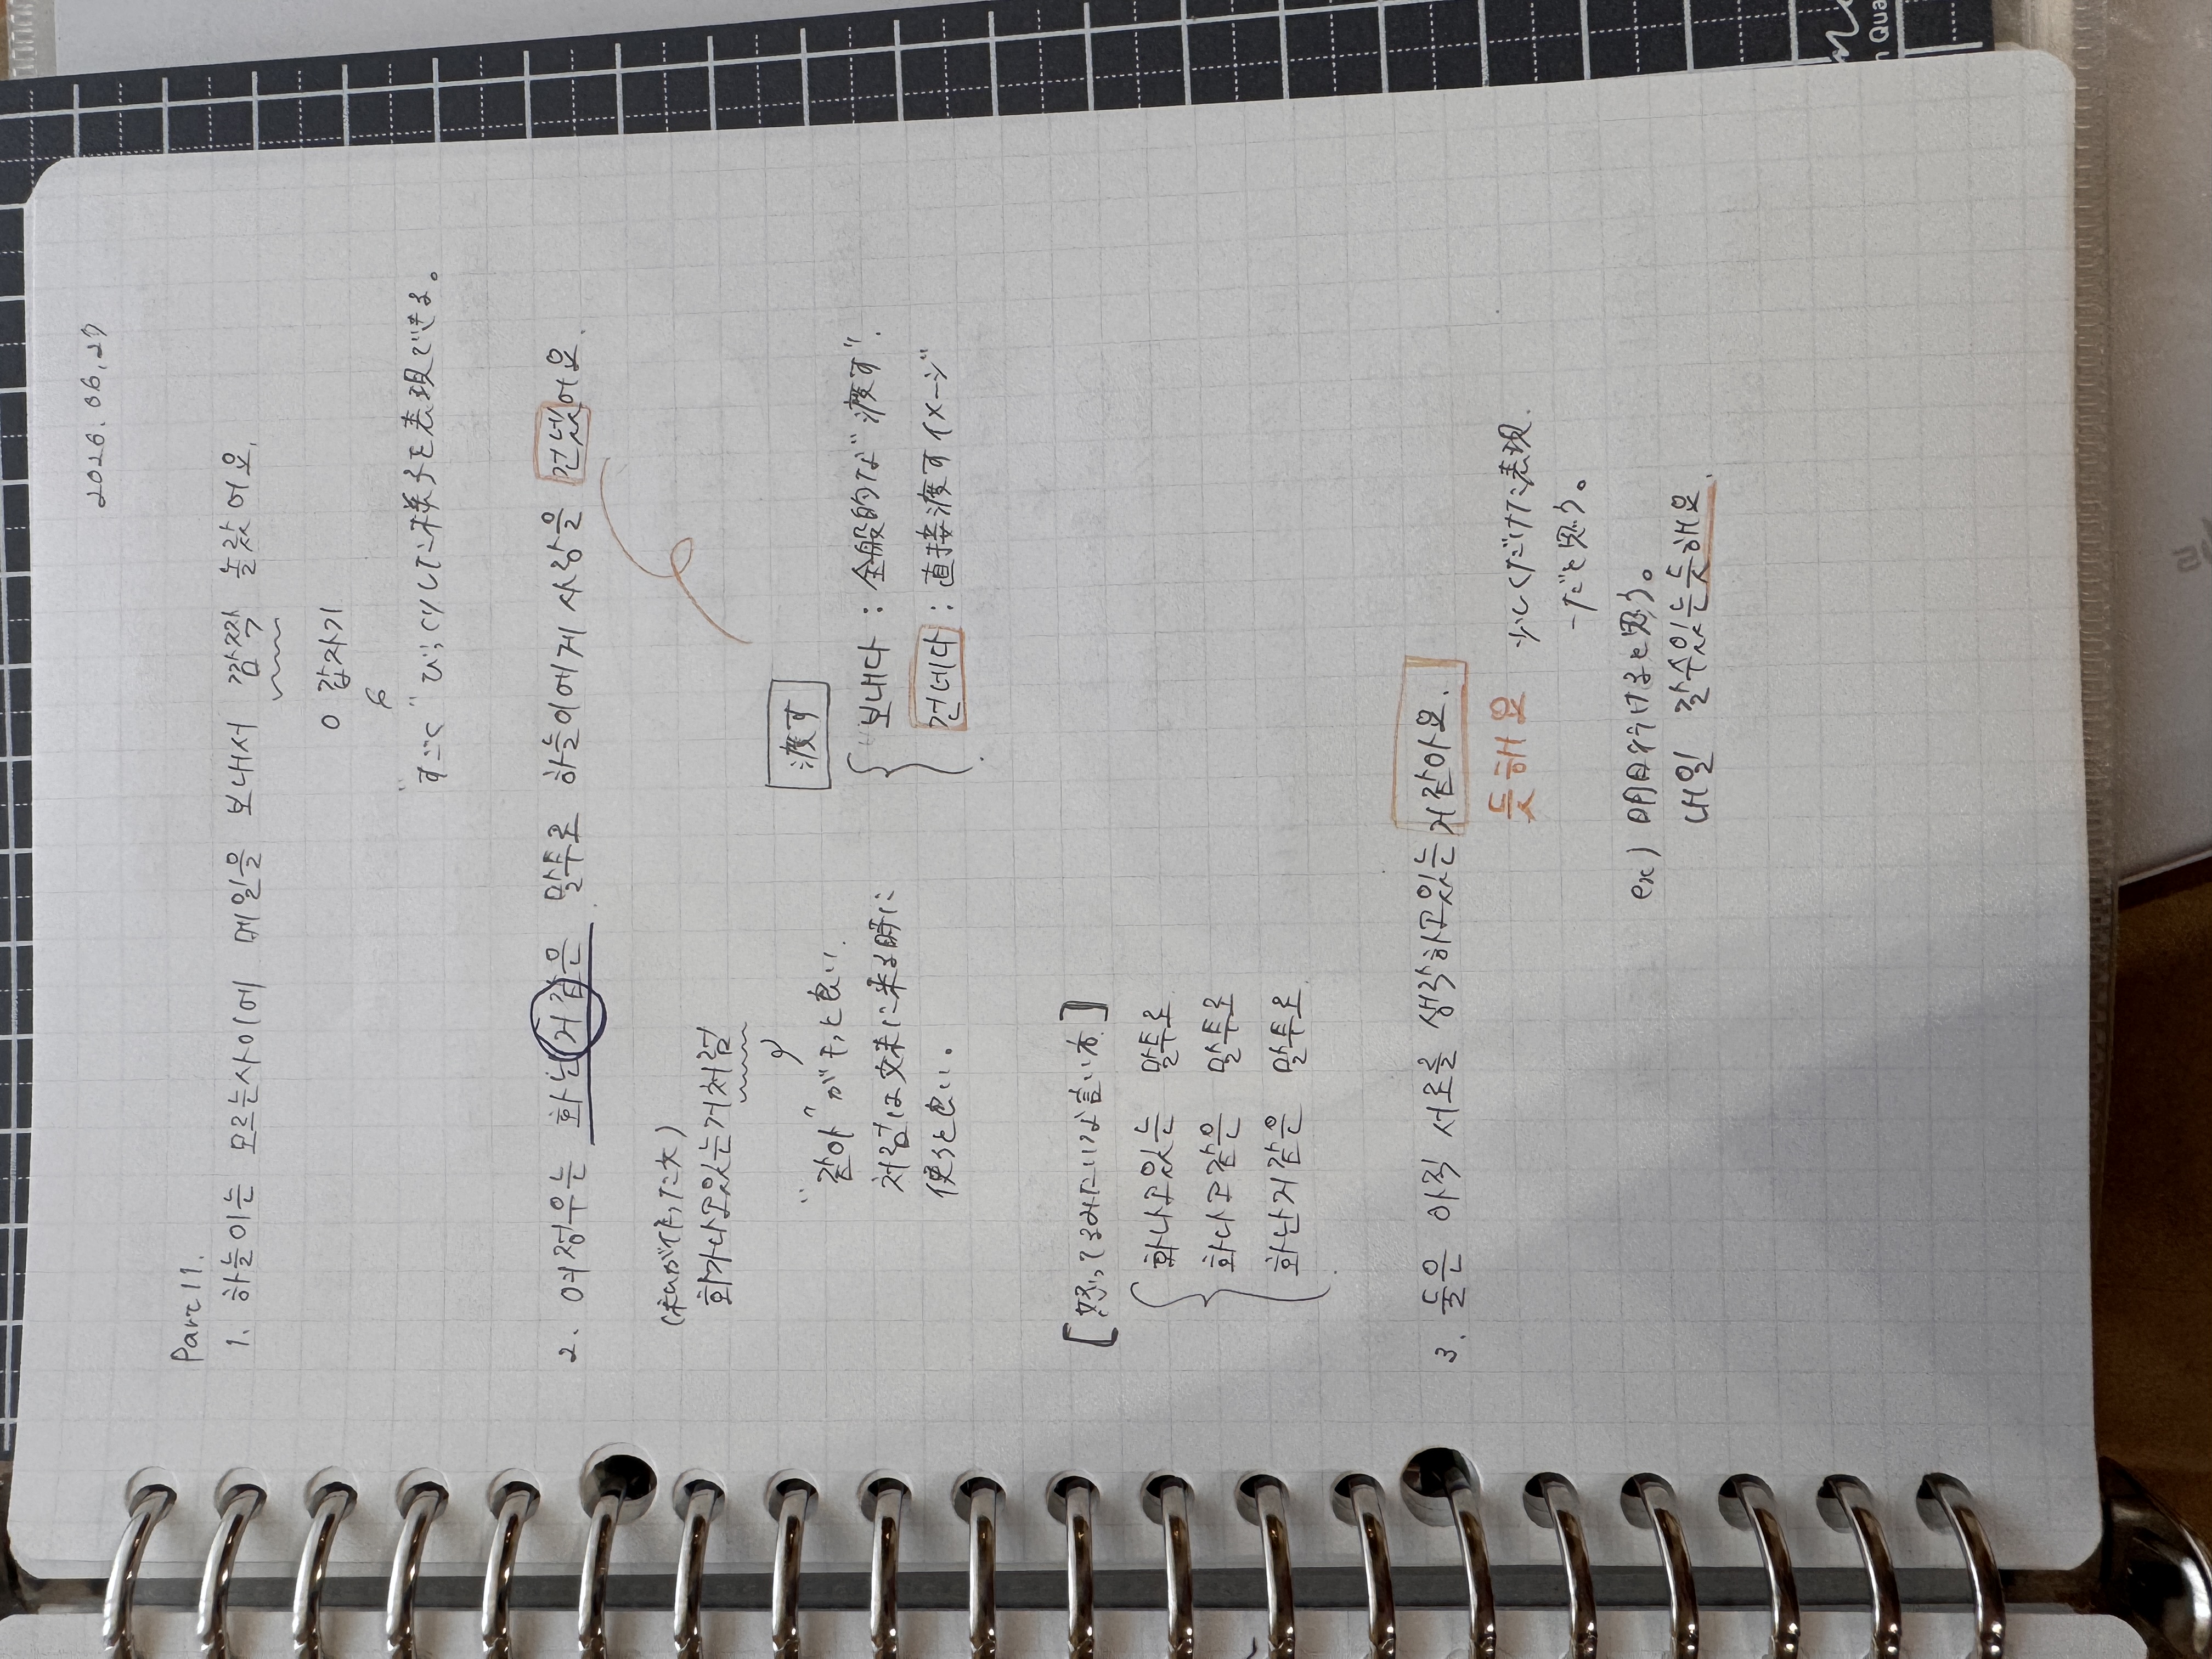 2026.06.27
Part 11.
1. 하늘이는 모르는사이에 메일을 보내서 깜짝 놀랐어요.
○ 갑자기
"すごくびっくりした様子を表現できる。
2. 여정우는 화난거같은 말투로 하늘이에게 사랑을 건넸어요.
(私が作った文)
화가나고있는거처럼
"같아"がもっと良い.
처럼は文末に来る時に
使うと良い。
渡す
보내다 : 全般的な"渡す".
건네다 : 直接渡すイメージ"
[怒ってるみたいな言い方]
화나고있는 말투로
화나고같은 말투로
화난거같은 말투로
3. 둘은 아직 서로를 생각하고있는거같아요.
듯해요 少しくだけた表現.
-だと思う。
ex) 明日行けると思う。
내일 갈수있는듯해요.